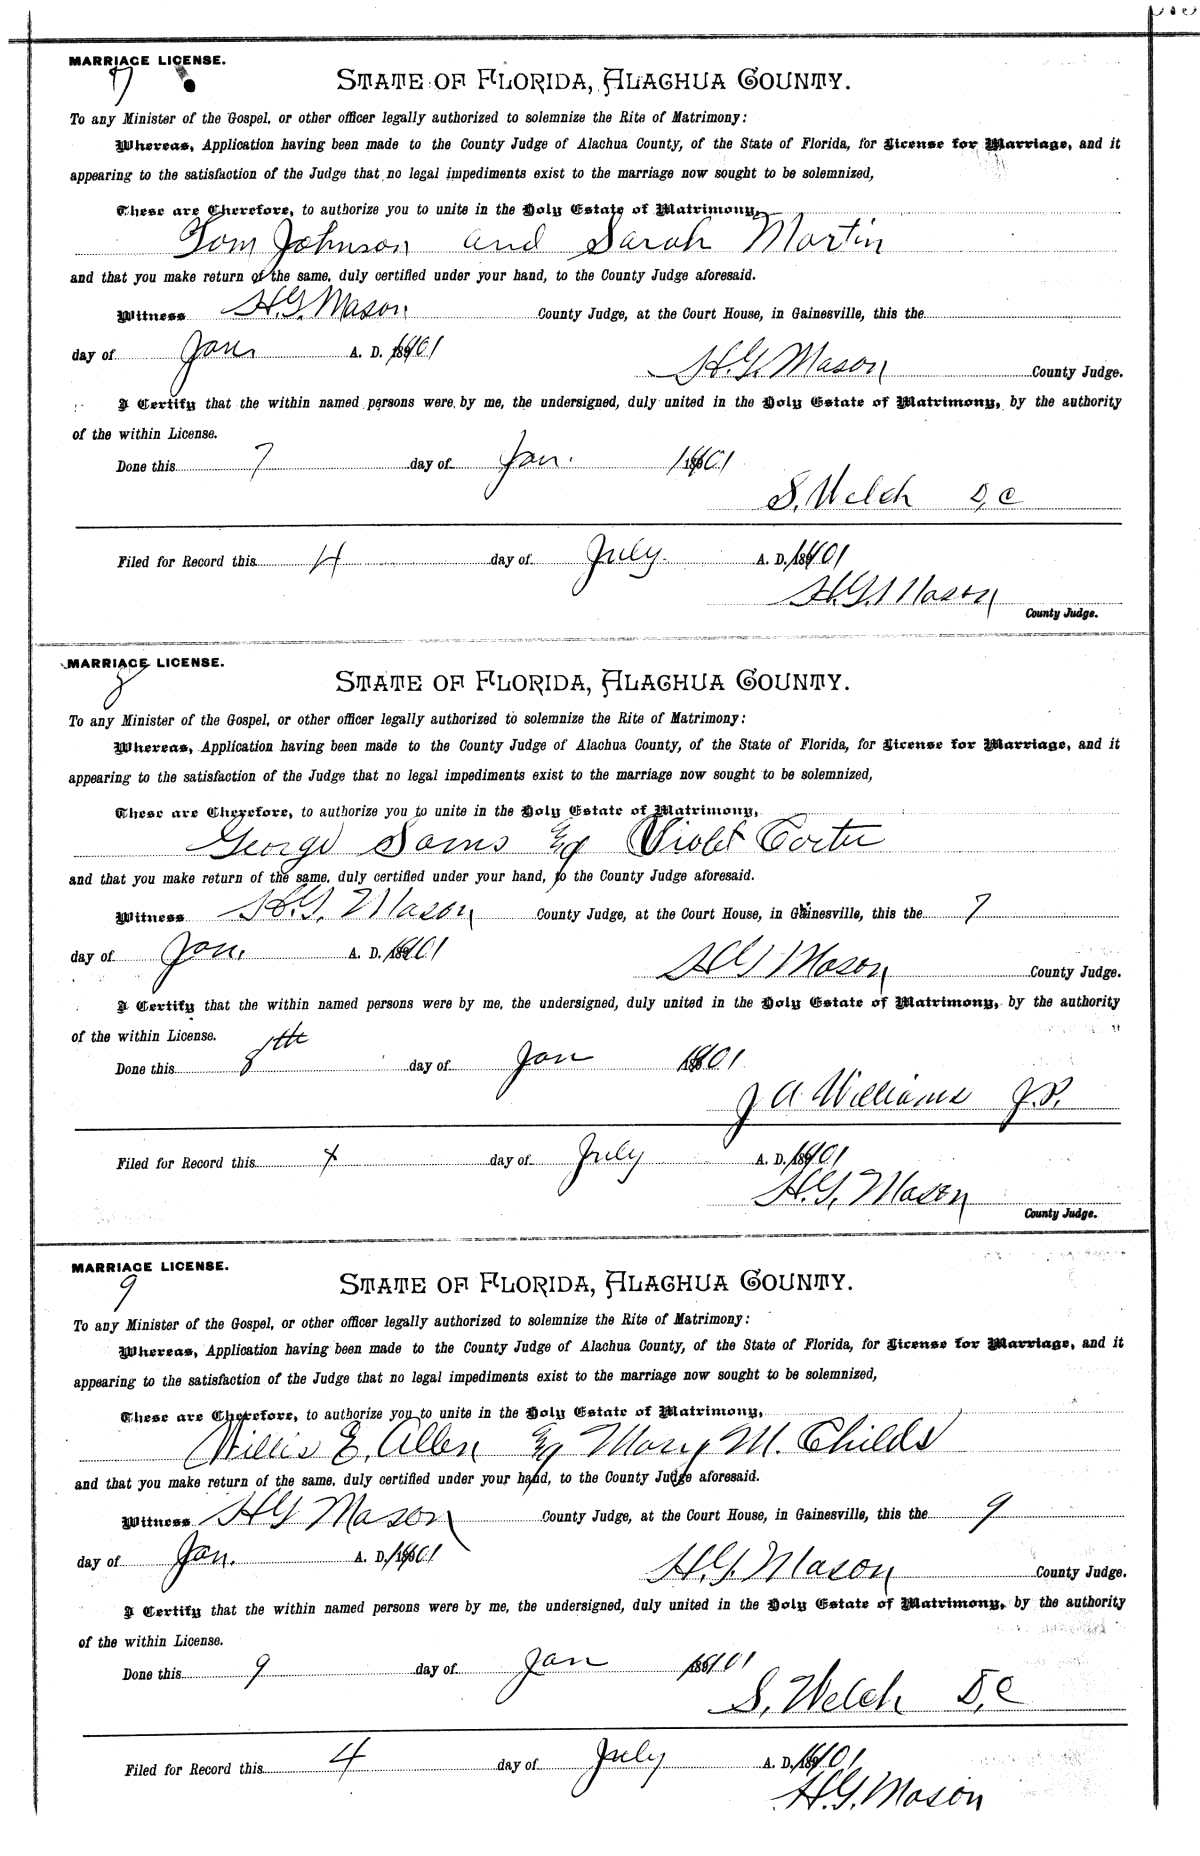 MARRIAGE LICENSE.
7
STATE OF FLORIDA, ALACHUA COUNTY.
To any Minister of the Gospel, or other officer legally authorized to solemnize the Rite of Matrimony:
Whereas, Application having been made to the County Judge of Alachua County, of the State of Florida, for License for Marriage, and it
appearing to the satisfaction of the Judge that no legal impediments exist to the marriage now sought to be solemnized,
These are Therefore, to authorize you to unite in the Holy Estate of Matrimony,
Tom Johnson and Sarah Martin
and that you make return of the same, duly certified under your hand, to the County Judge aforesaid.
Witness H.G. Mason County Judge, at the Court House, in Gainesville, this the
day of Jan. A. D. 1901
H.G. Mason County Judge.
I Certify that the within named persons were by me, the undersigned, duly united in the Holy Estate of Matrimony, by the authority
of the within License.
Done this 7 day of Jan. 1901
S. Welch D,C
Filed for Record this 4 day of July A. D. 1901
H.G. Mason
County Judge.
MARRIAGE LICENSE.
8
STATE OF FLORIDA, ALACHUA COUNTY.
To any Minister of the Gospel, or other officer legally authorized to solemnize the Rite of Matrimony:
Whereas, Application having been made to the County Judge of Alachua County, of the State of Florida, for License for Marriage, and it
appearing to the satisfaction of the Judge that no legal impediments exist to the marriage now sought to be solemnized,
These are Therefore, to authorize you to unite in the Holy Estate of Matrimony,
George Sams & Violet Carter
and that you make return of the same, duly certified under your hand, to the County Judge aforesaid.
Witness H.G. Mason County Judge, at the Court House, in Gainesville, this the 7
day of Jan. A. D. 1901
H G Mason County Judge.
I Certify that the within named persons were by me, the undersigned, duly united in the Holy Estate of Matrimony, by the authority
of the within License.
Done this 8th day of Jan 1901
J A Williams J.P.
Filed for Record this 4 day of July A. D. 1901
H.G. Mason
County Judge.
MARRIAGE LICENSE.
9
STATE OF FLORIDA, ALACHUA COUNTY.
To any Minister of the Gospel, or other officer legally authorized to solemnize the Rite of Matrimony:
Whereas, Application having been made to the County Judge of Alachua County, of the State of Florida, for License for Marriage, and it
appearing to the satisfaction of the Judge that no legal impediments exist to the marriage now sought to be solemnized,
These are Therefore, to authorize you to unite in the Holy Estate of Matrimony,
Willis E. Allen & Mary M. Childs
and that you make return of the same, duly certified under your hand, to the County Judge aforesaid.
Witness H G Mason County Judge, at the Court House, in Gainesville, this the 9
day of Jan. A. D. 1901
H.G. Mason County Judge.
I Certify that the within named persons were by me, the undersigned, duly united in the Holy Estate of Matrimony, by the authority
of the within License.
Done this 9 day of Jan 1901
S. Welch D,C
Filed for Record this 4 day of July A. D. 1901
H.G. Mason